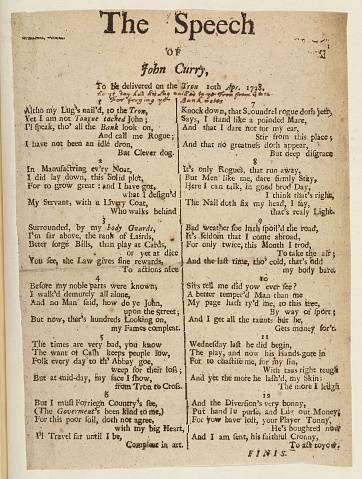 The Speech
OF
John Curry,
To be delivered on the Tron 10th Apr. 1728.
1
Altho my Lug's nail'd, to the Tron,
Yet I am not Tongue tacked John;
I'l speak, tho' all the Bank look on,
And call me Rogue;
I have not been an idle dron,
But Clever dog.
2
In Manufactring ev'ry Noat,
I did lay down, this Solid plot,
For to grow great: and I have got,
what I design'd
My Servant, with a Livery Coat,
Who walks behind
3
Surrounded, by my body Guards,
I'm far above, the rank of Lairds,
Better forge Bills, than play at Cards,
or yet at dice
You see, the Law gives fine rewards,
To actions nice
4
Before my noble parts were known,
I walk'd demurely all alone,
And no Man said, how do ye John,
upon the street;
But now, ther's hundreds Looking on,
my Fames compleat.
5
The times are very bad, you know
The want of Cash keeps people low,
Folk every day to th' Abbay goe,
weep for their loss;
But at mid-day, my face I show,
from Tron to Cross.
6
But I must Forriegn Country's see,
(The Goverment's been kind to me,)
For this poor soil, doth not agree,
with my big Heart,
I'l Travel far until I be,
Compleat in art.
7
Knock down, that Scoundrel rogue doth yell,
Says, I stand like a poinded Mare,
And that I dare not for my ear,
Stir from this place;
And that no greatness doth appear,
But deep disgrace
8
It's only Rogues, that run away,
But Men like me, dare firmly Stay,
Here I can talk, in good brod Day,
I think that's right,
The Nail doth fix my head, I say,
that's realy Light.
9
Bad weather foe hath spoil'd the road,
It's seldom that I come abroad,
For only twice, this Month I trod,
To take the air;
And the last time, tho' cold, that's odd
my body bare.
10
Sirs tell me did you ever see?
A better temper'd Man than me
My page hath ty'd me, to this tree,
By way of sport;
And I get all the taunts but he,
Gets money for't.
11
Wednesday last he did begin,
The play, and now his Hands gore in
For to chastise me, for my sin,
With taus right teugh
And yet the more he lash'd, my Skin
The more I leugh
12
And the Diversion's very bonny,
Put hand in purse, and Lay out Money,
For you have loft, your Player Tonny,
He's boughted now
And I am sent, his faithful Cronny,
To aft toyow.
FINIS.